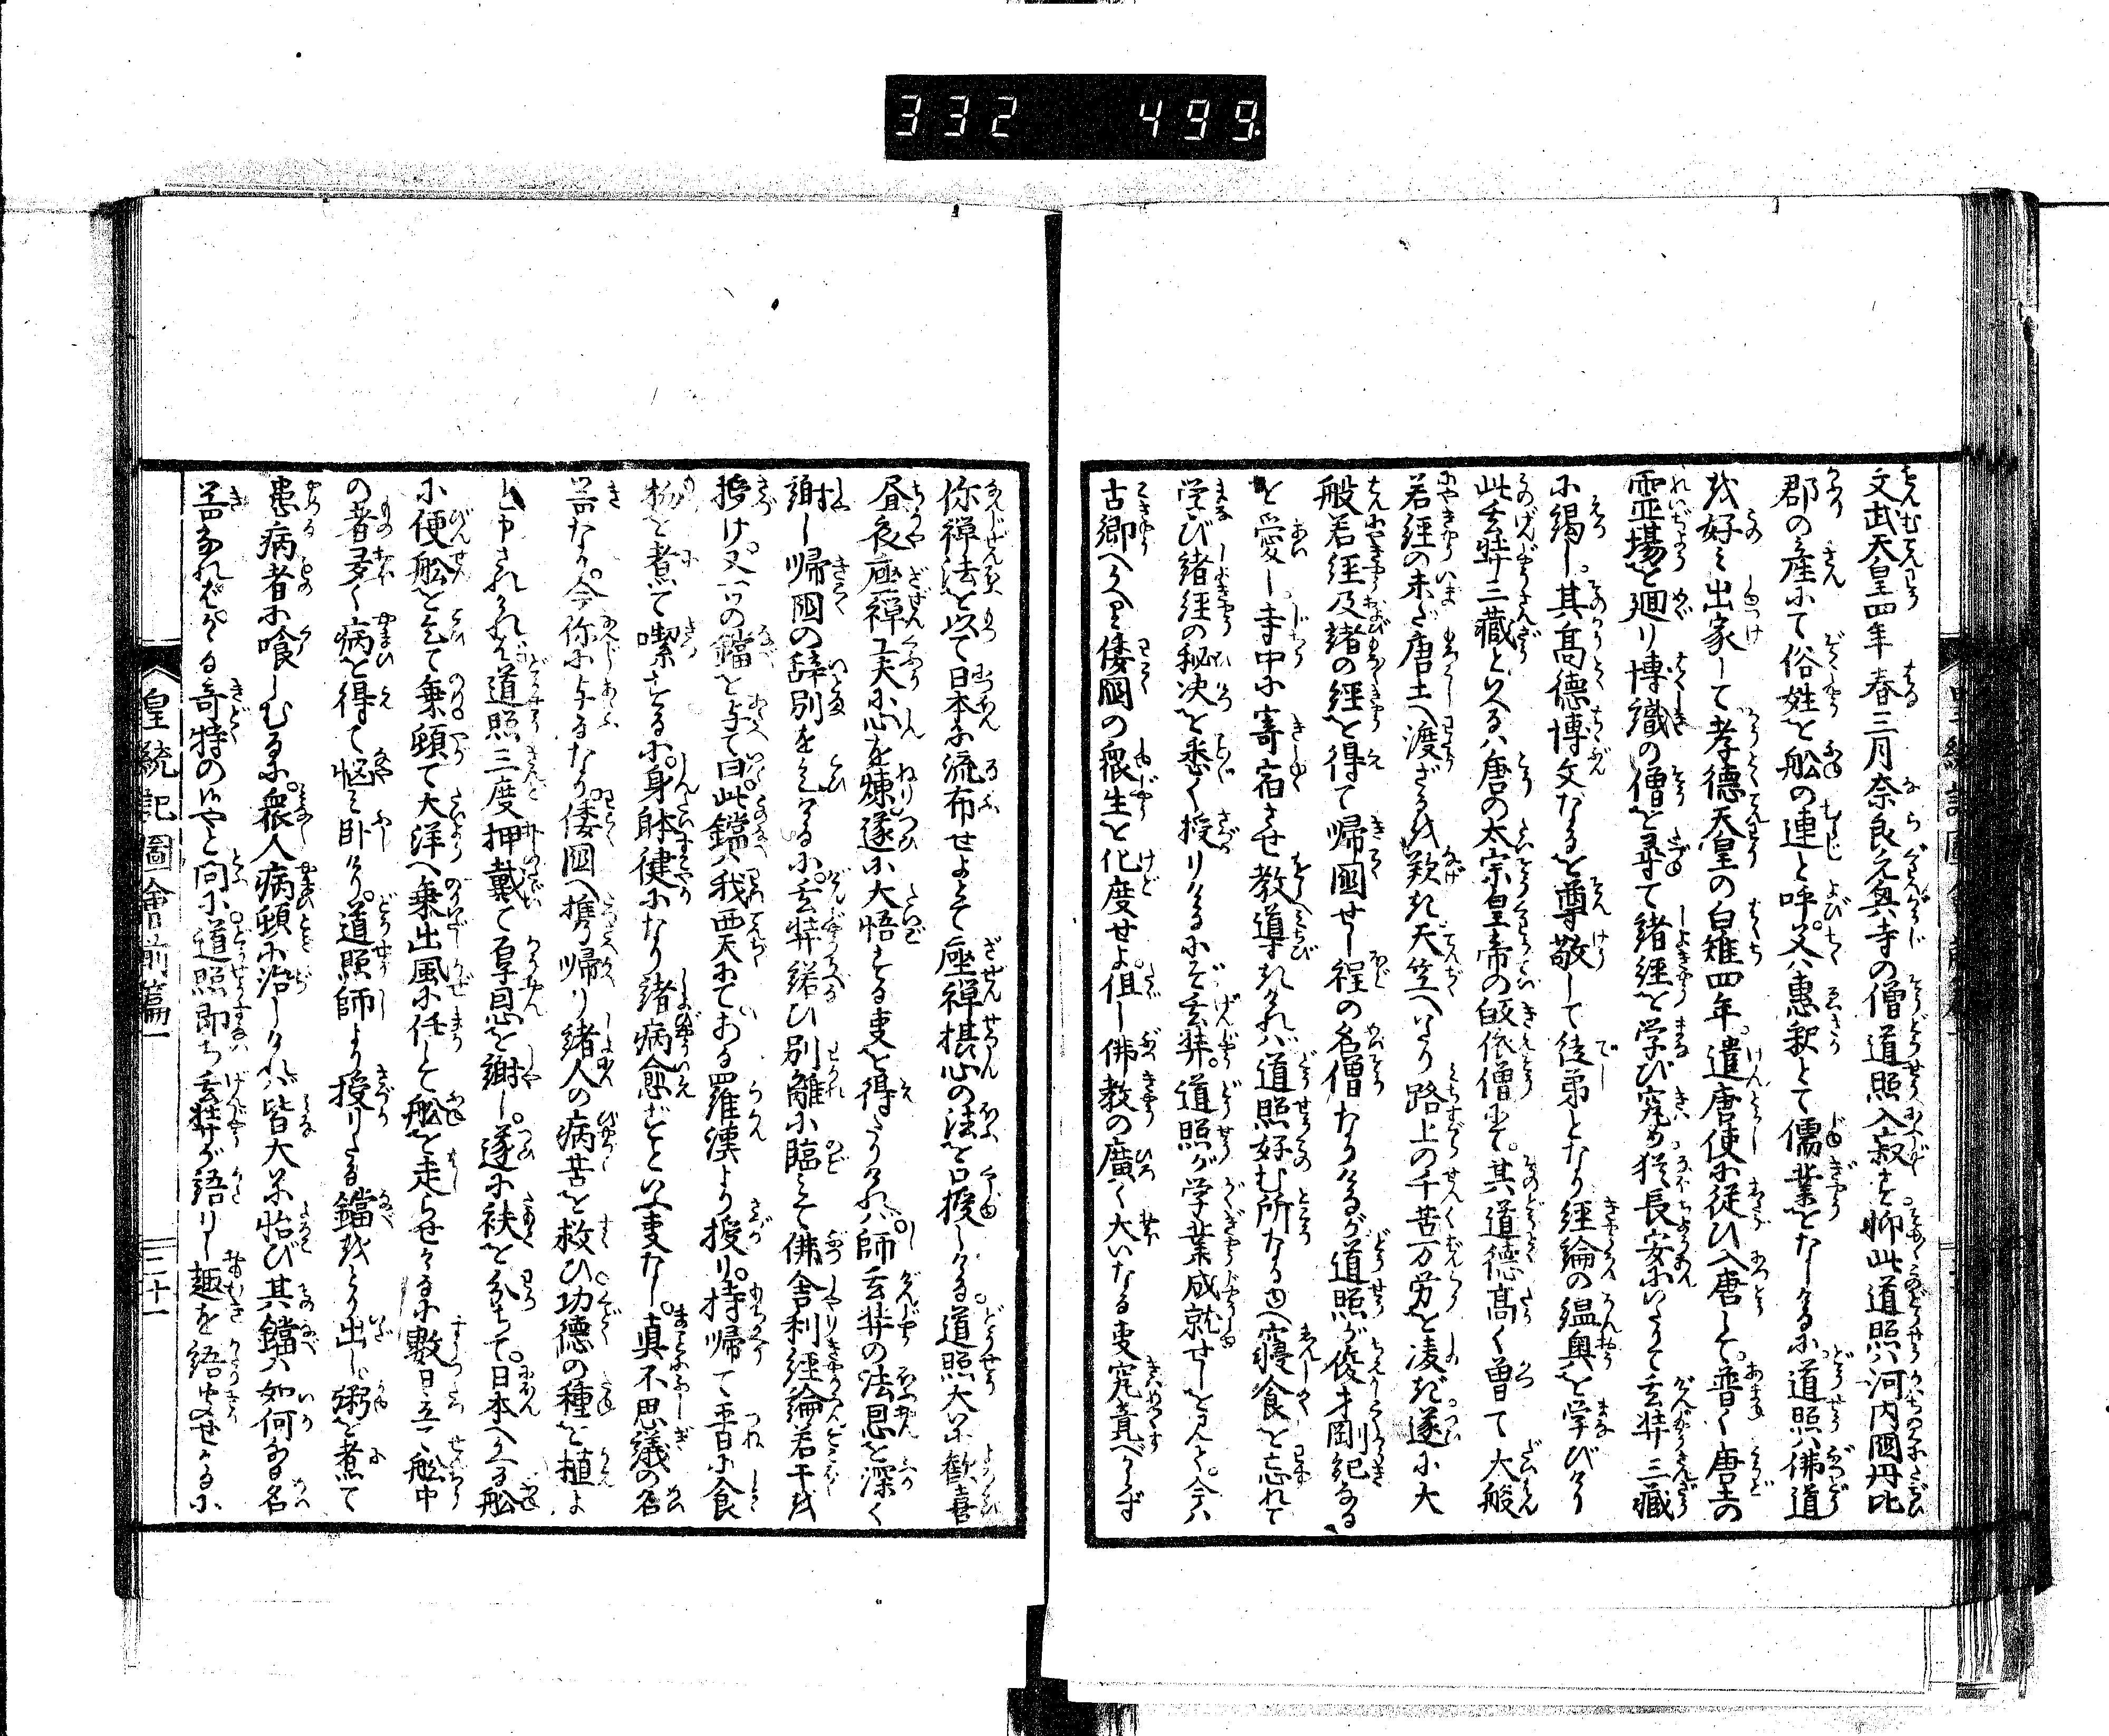 332 499.
文武天皇四年春三月奈良元興寺の僧道照入寂す抑此道照ハ河内国丹比
郡の産にて俗姓を舩の連と呼。父ハ惠釈とて儒業となしけるに道照ハ佛道
を好ミ出家して孝徳天皇の白雉四年。遣唐使に従ひ入唐して。普く唐土の
霊場を廻り博識の僧を尋て緒経を学び究め猶長安にいたりて玄弉三藏
に謁し。其髙徳博文なるを尊敬して徒弟となり経論の緼奥を学びけり
此玄弉三藏といへるハ唐の太宗皇帝の皈依僧にて。其道徳髙く曽て大般
若経の未ダ唐土へ渡ざるを歎き天竺へいたり路上の千苦万労を凌ぎ遂に大
般若経及諸の経を得て帰國せし程の名僧なりけるが道照が俊才剛紀なる
を愛し寺中に寄宿させ教導きけれバ道照好む所なるゆへ寝食を忘れて
学び緒経の秘决を悉く授りけるにぞ玄弉。道照が学業成就せしを見て。今ハ
古郷へかへり倭國の衆生を化度せよ。但し佛教の廣く大いなる事究竟べからず
你禅法を以て日本に流布せよとて座禅揕心の法を口授しける。道照大に歓喜
昼夜座禅工夫に心を煉遂に大悟する事を得たりけれバ。師玄弉の法恩を深く
謝し帰國の辞別をこひけるに。玄弉諾ひ別離に臨ミて佛舎利経論若干を
授け。又一ツの鐺を与て曰。此鐺ハ我西天にてある羅漢より授り。持帰て平日に食
物を煮て喫するに。身躰健になり緒病愈ずといふ事なし。真不思議の名
器なり。今你に与るなり倭國へ携帰り緒人の病苦を救ひ功徳の種を植よ
と申されけれバ道照三度押戴て厚恩を謝し。遂に袂を分ちて。日本へかへる舩
に便舩を乞て乗頓て大洋へ乗出風に任して舩を走らせけるに數日立て舩中
の者多く病を得て悩ミ卧けり。道照師より授りたる鐺をとり出し粥を煮て
患病者に喰しむるに。衆人病頓に治しけれバ皆大に怡び其鐺ハ如何なる名
器なれバかゝる奇特のいやと問に道照即ち玄弉が語りし趣を語聞せけるに
皇統記圖會前篇一
三十一